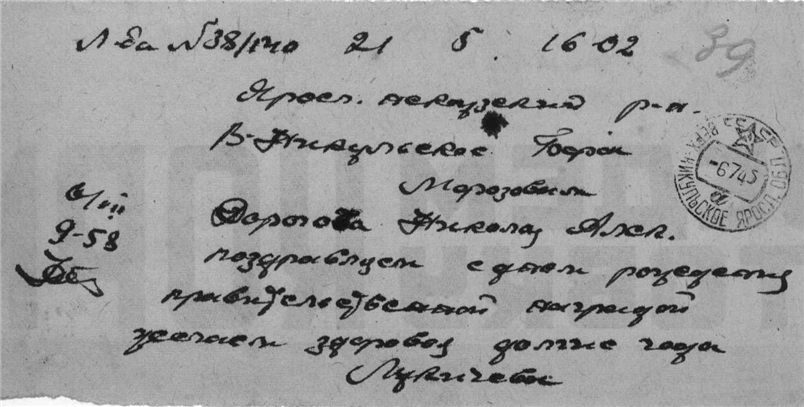 Л-да N 38/140 21 5 16-02
39
Яросл. некоузский р-н.
В-Никульское Борок
Морозовым
Дорогова Николая Алек.
поздравляем с днем рождения
правительственной наградой
желаем здоровья долгие года
Лукичевы
9-58
СССР
ВЕРХ.-НИКУЛЬСКОЕ ЯРОСЛ. ОБЛ.
-6745